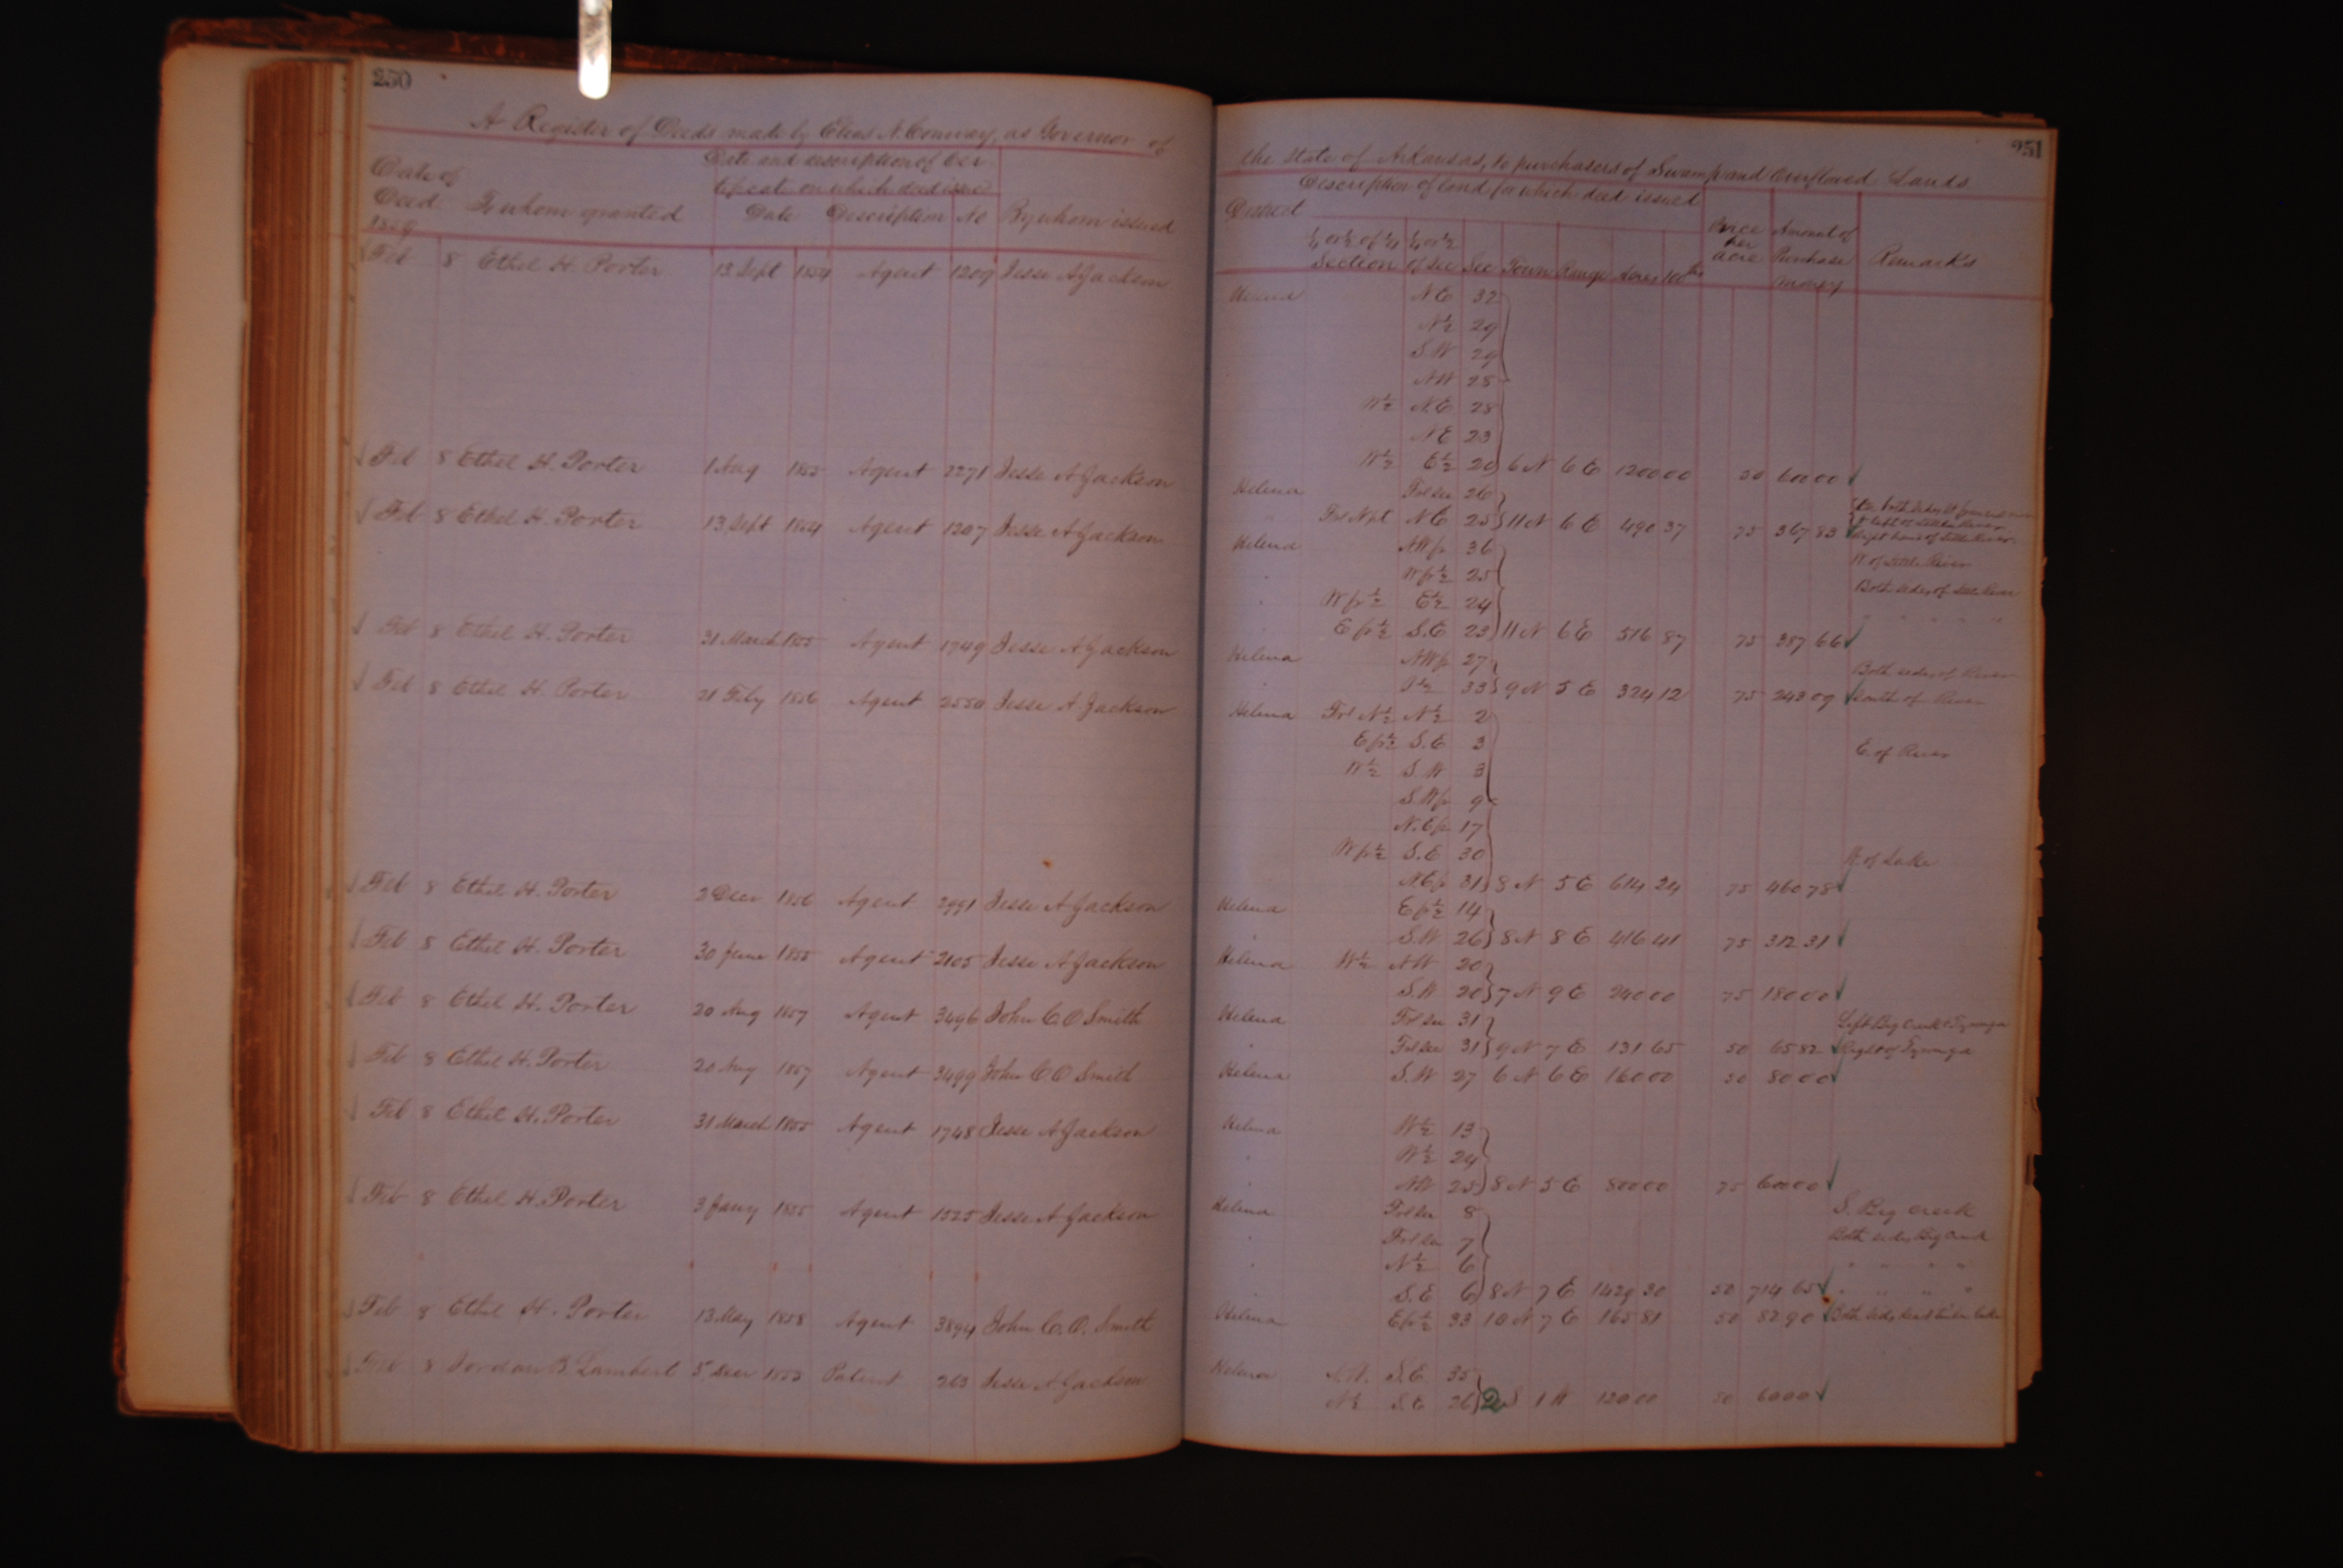 250
A Register of Deeds made by Elias N. Conway, as Governor of
Date of Deed To whom granted Date and description of Certificate on which deed issued By whom issued
1859 Date Description No
Feb 8 Ethel H. Porter 13 Sept 1854 Agent 1209 Jesse A Jackson
Feb 8 Ethel H. Porter 1 Aug 1855 Agent 2271 Jesse A Jackson
Feb 8 Ethel H. Porter 13 Sept 1854 Agent 1207 Jesse A Jackson
Feb 8 Ethel H. Porter 31 March 1855 Agent 1749 Jesse A Jackson
Feb 8 Ethel H. Porter 21 Feby 1856 Agent 2550 Jesse A. Jackson
Feb 8 Ethel H. Porter 2 Decr 1856 Agent 2991 Jesse A Jackson
Feb 8 Ethel H. Porter 30 June 1855 Agent 2105 Jesse A Jackson
Feb 8 Ethel H. Porter 20 Aug 1857 Agent 3496 John C. O Smith
Feb 8 Ethel H. Porter 20 Aug 1857 Agent 3499 John C O Smith
Feb 8 Ethel H. Porter 31 March 1855 Agent 1748 Jesse A Jackson
Feb 8 Ethel H. Porter 3 Jany 1855 Agent 1525 Jesse A Jackson
Feb 8 Ethel H. Porter 13 May 1858 Agent 3894 John C. O. Smith
Feb 8 Jordan B. Lambert 5 Decr 1853 Patent 263 Jesse A Jackson
251
the State of Arkansas, to purchasers of Swamp and Overflowed Lands
District Description of land for which deed issued Price per acre Amount of Purchase money Remarks
¼ or ½ of ¼ Section ¼ or ½ of Sec Sec Town Range Acres 100ths
Helena NE 32
N½ 29
S.W 29
NW 28
W½ N.E 28
NE 23
W½ E½ 20 6 N 6 E 1200 00 50 600 00
Helena Frl sec 26
Frl N pt NE 25 11 N 6 E 490 37 75 367 83
Helena NW fr 36
W fr ½ 25 W. of Little River
W fr ½ E½ 24 Both sides of Little River
E fr ½ S.E 23 11 N 6 E 516 87 75 387 66 " " " " "
Helena NW fr 27 Both sides of River
33 9 N 5 E 324 12 75 243 09 South of River
Helena Frl N½ N½ 2
E fr ½ S.E 3 E. of River
W½ S.W 3
S.W fr 9
N.E fr 17
W fr ½ S.E 30 W. of Lake
N.E fr 31 8 N 5 E 614 24 75 460 78
Helena E fr ½ 14
S.W 26 8 N 8 E 416 41 75 312 31
Helena W½ NW 20
S.W 20 7 N 9 E 240 00 75 180 00
Helena Frl sec 31 Left Big Creek & Tyronza
Frl sec 31 9 N 7 E 131 65 50 65 82 Right of Tyronza
Helena S.W 27 6 N 6 E 160 00 50 80 00
Helena W½ 13
W½ 24
NW 25 8 N 5 E 800 00 75 600 00
Helena Frl sec 8 S. Big Creek
Frl sec 7 Both sides Big Creek
N½ 6 " " " "
S.E 6 8 N 7 E 1429 30 50 714 65 " " " "
Helena E fr ½ 33 10 N 7 E 165 81 50 82 90 Both sides dead timber lake
Helena N.W. S.E. 35
N½ S.E 26 2 S 1 W 120 00 50 60 00